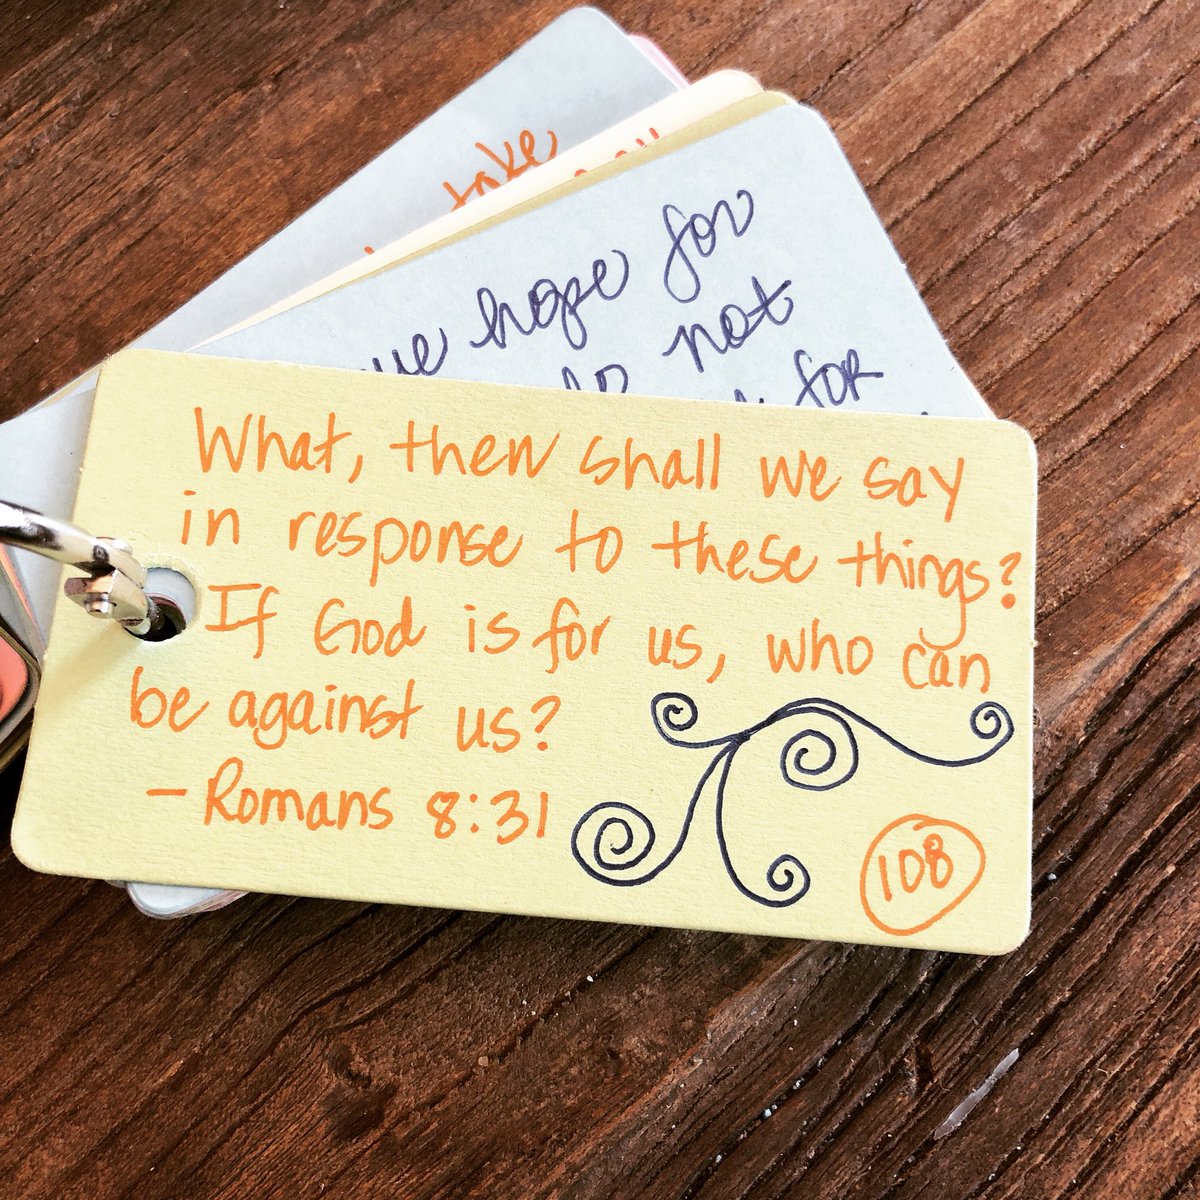 take
hope for
not
for
What, then shall we say
in response to these things?
If God is for us, who can
be against us?
- Romans 8:31
108